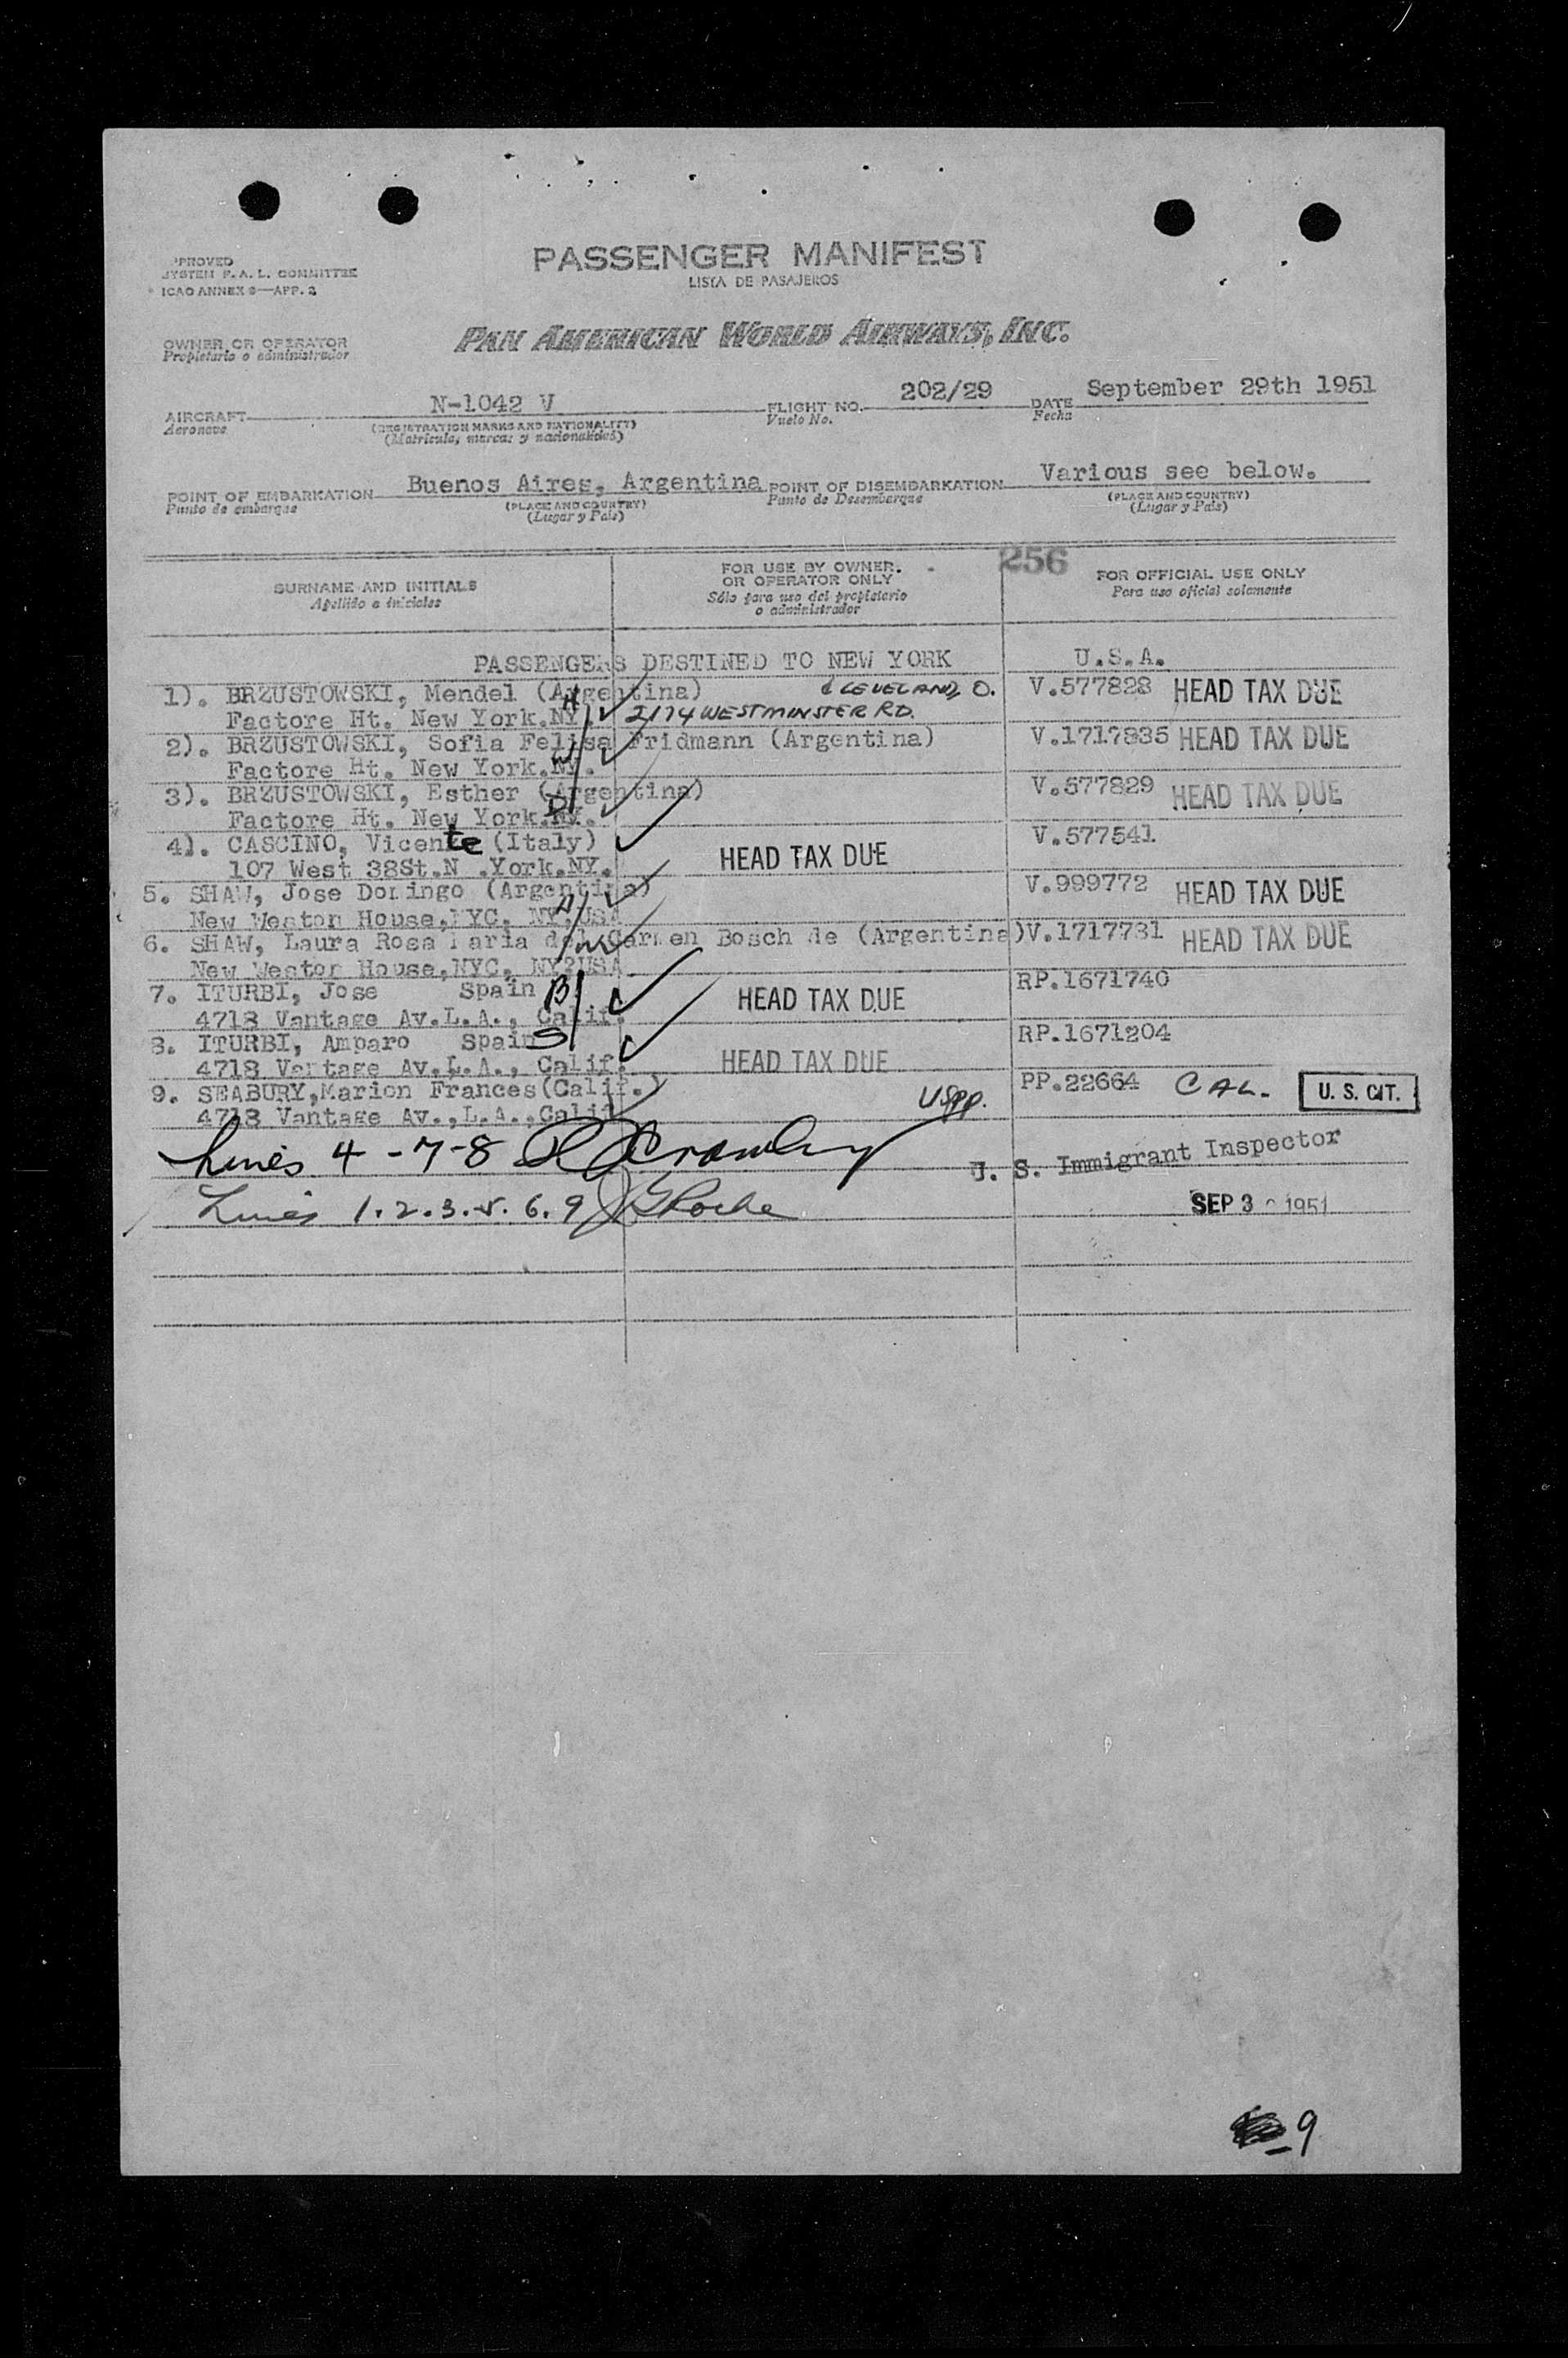 PASSENGER MANIFEST
LISTA DE PASAJEROS
APPROVED
SYSTEM F. A. L. COMMITTEE
ICAO ANNEX 9—APP. 2
OWNER OR OPERATOR
Propietario o administrador
PAN AMERICAN WORLD AIRWAYS, INC.
AIRCRAFT N-1042 V FLIGHT NO. 202/29 DATE September 29th 1951
Aeronave (REGISTRATION MARKS AND NATIONALITY) Vuelo No. Fecha
(Matrícula, marcas y nacionalidad)
POINT OF EMBARKATION Buenos Aires, Argentina POINT OF DISEMBARKATION Various see below.
Punto de embarque (PLACE AND COUNTRY) Punto de Desembarque (PLACE AND COUNTRY)
(Lugar y País) (Lugar y País)
256
SURNAME AND INITIALS FOR USE BY OWNER OR OPERATOR ONLY FOR OFFICIAL USE ONLY
Apellido e iniciales Sólo para uso del propietario o administrador Para uso oficial solamente
PASSENGERS DESTINED TO NEW YORK U.S.A.
1). BRZUSTOWSKI, Mendel (Argentina) CLEVELAND, O. V.577828 HEAD TAX DUE
Factore Ht. New York.NY. 2174 WESTMINSTER RD.
2). BRZUSTOWSKI, Sofia Felisa Fridmann (Argentina) V.1717835 HEAD TAX DUE
Factore Ht. New York.NY.
3). BRZUSTOWSKI, Esther (Argentina) V.577829 HEAD TAX DUE
Factore Ht. New York.NY.
4). CASCINO, Vicente (Italy) HEAD TAX DUE V.577541
107 West 38St.N .York.NY.
5. SHAW, Jose Domingo (Argentina) V.999772 HEAD TAX DUE
New Weston House,NYC, NY,USA
6. SHAW, Laura Rosa Maria del Carmen Bosch de (Argentina)V.1717731 HEAD TAX DUE
New Weston House,NYC, NY?USA
7. ITURBI, Jose Spain HEAD TAX DUE RP.1671740
4718 Vantage Av.L.A., Calif.
8. ITURBI, Amparo Spain HEAD TAX DUE RP.1671204
4718 Vantage Av.L.A., Calif.
9. SEABURY,Marion Frances(Calif.) USPP. PP.22664 CAL. U. S. CIT.
4718 Vantage Av.,L.A.,Calif
Lines 4 - 7 - 8 U. S. Immigrant Inspector
Lines 1. 2. 3. 5. 6. 9 SEP 3 1951
9